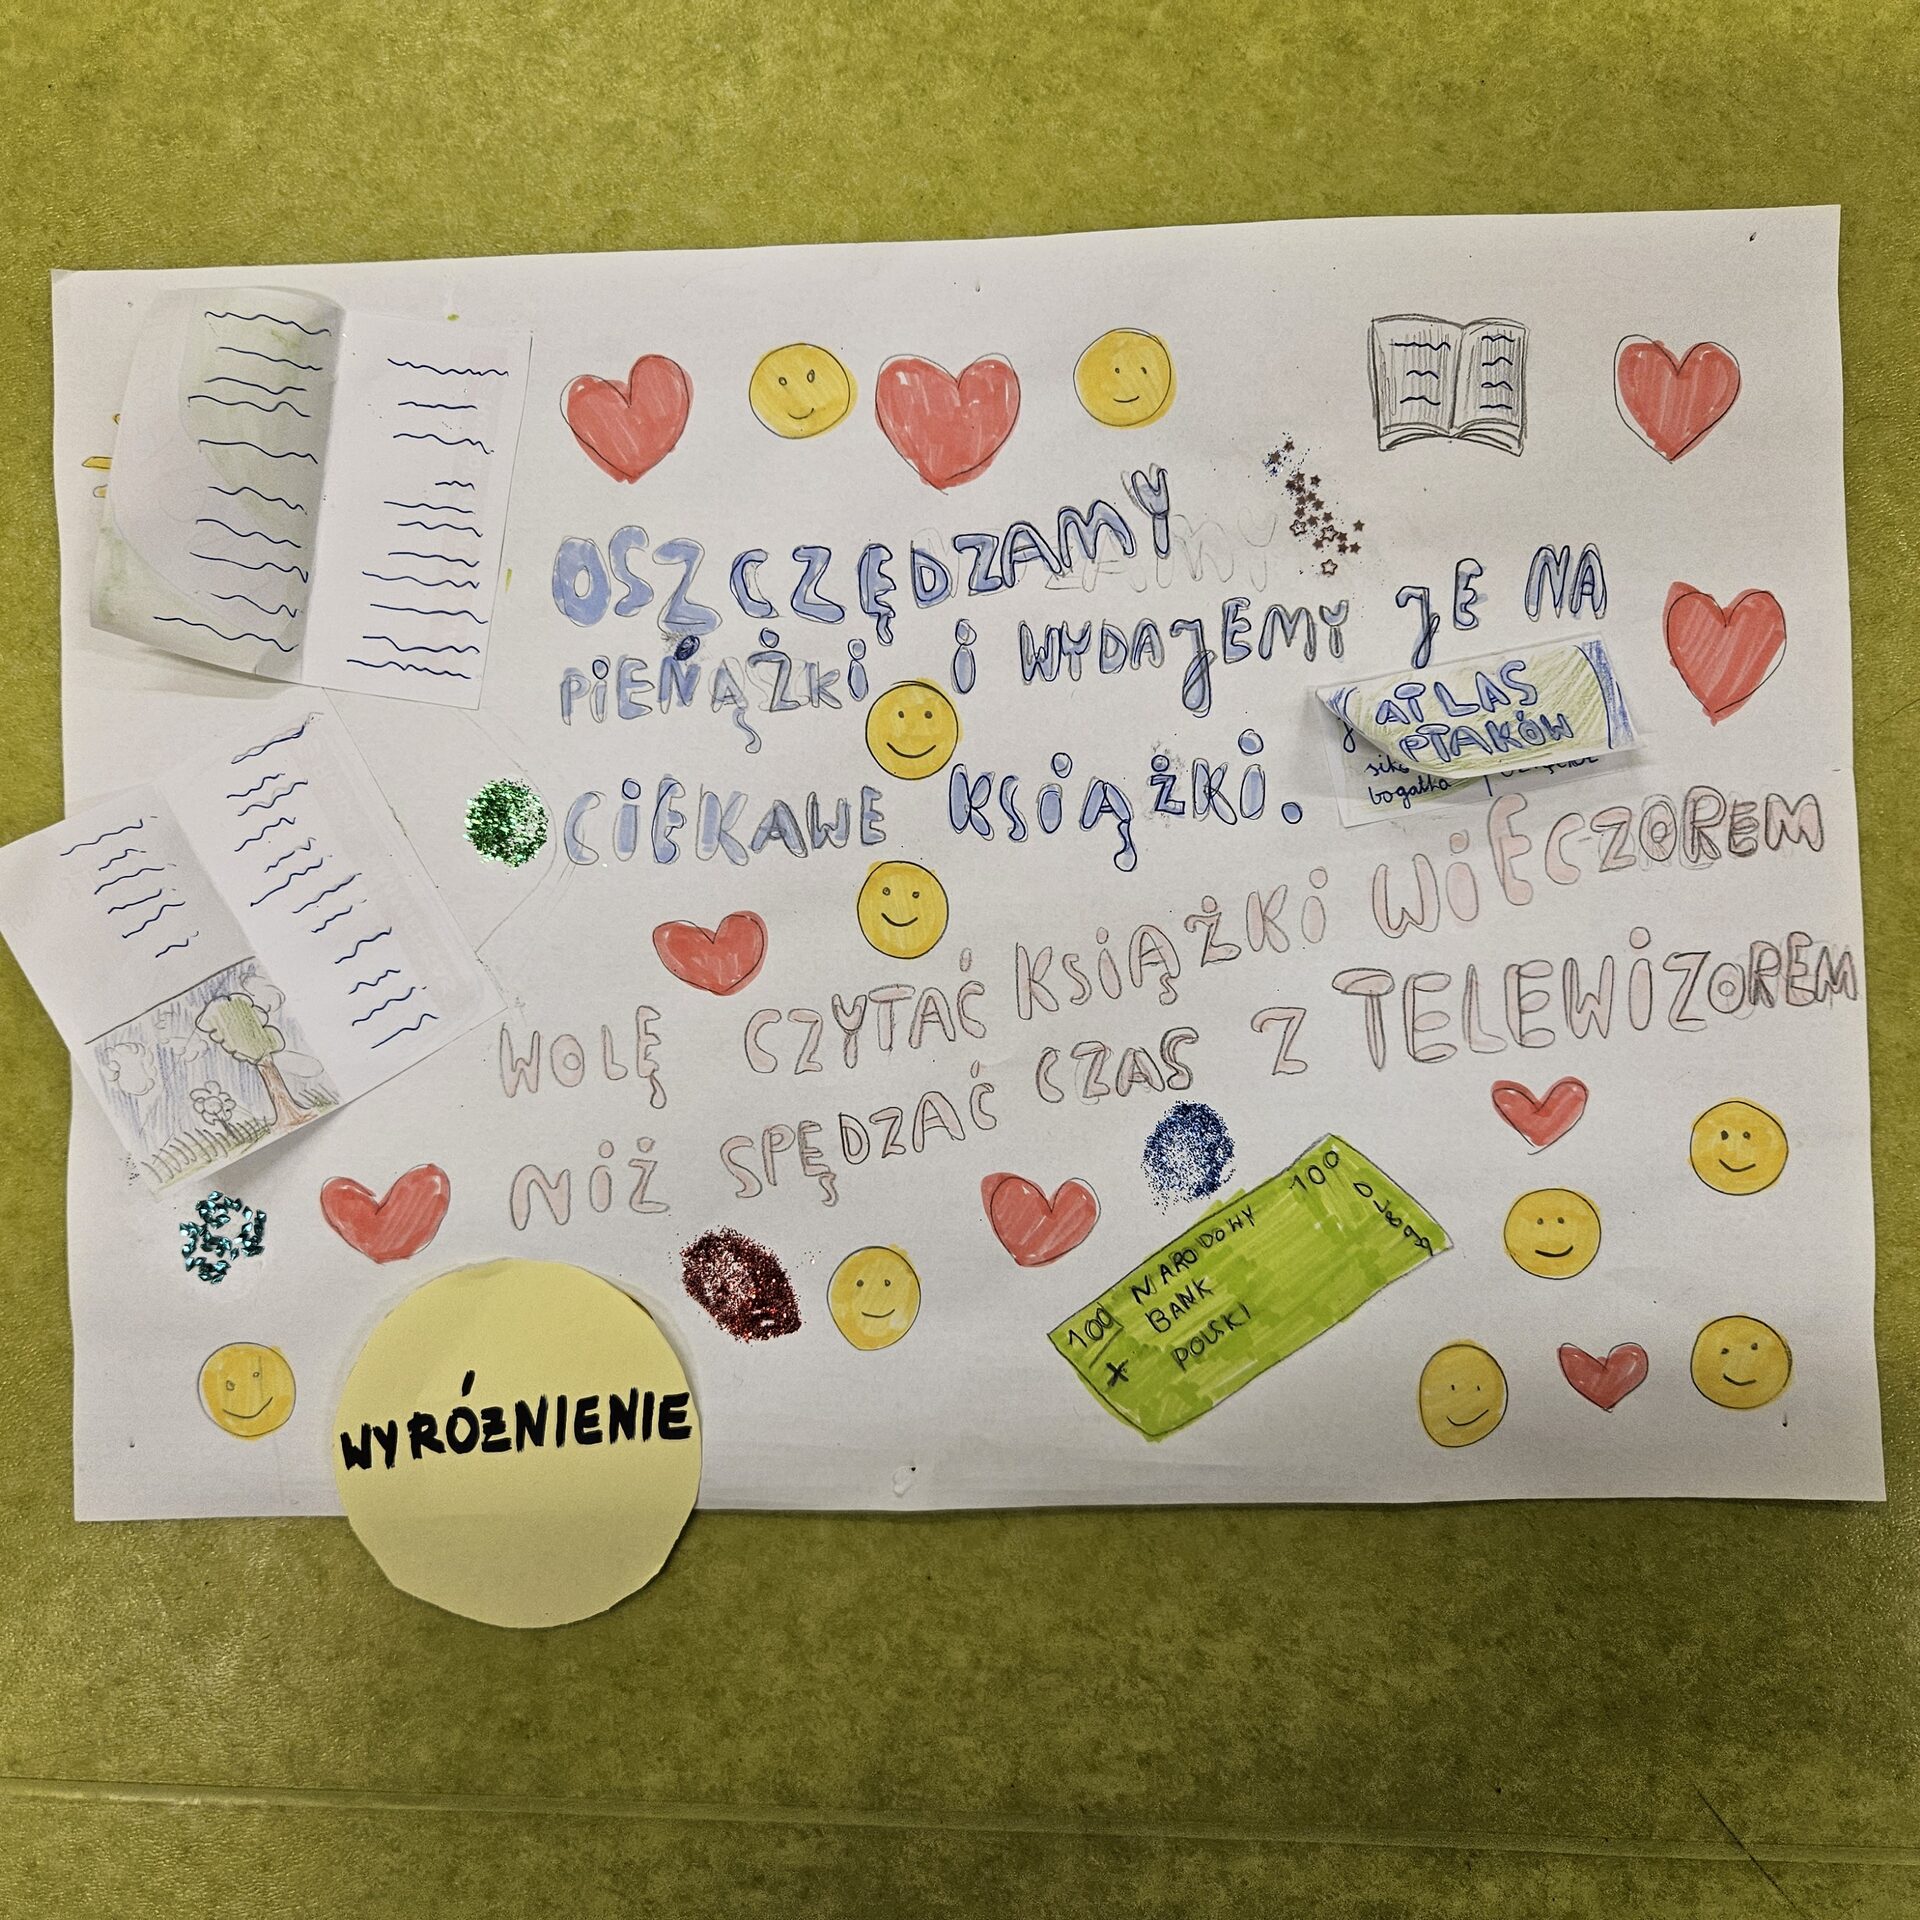 OSZCZĘDZAMY
PIENĄŻKI I WYDAJEMY JE NA
CIEKAWE KSIĄŻKI.
ATLAS
PTAKÓW
bogatka
WOLĘ CZYTAĆ KSIĄŻKI WIECZOREM
NIŻ SPĘDZAĆ CZAS Z TELEWIZOREM
100
NARODOWY
BANK
POLSKI
100
WYRÓŻNIENIE